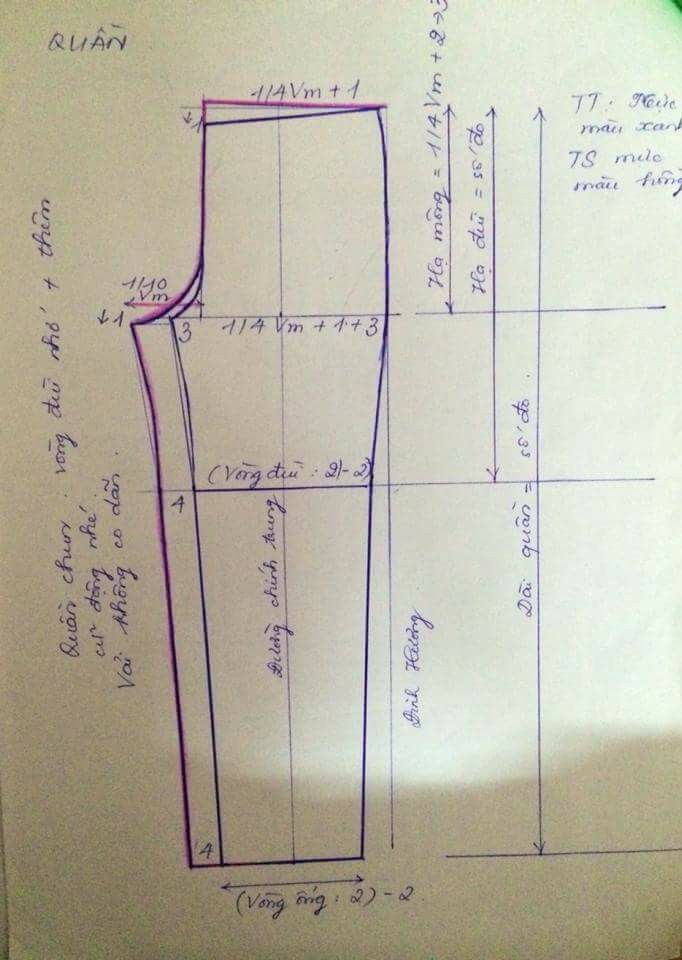 QUẦN
1/4 Vm + 1
↓1
1/10
Vm
↓1
3
1/4 Vm + 1 + 3
(Vòng đùi : 2) - 2
4
4
(Vòng ống : 2) - 2
Đường chính trung
Đinh Hường
Hạ mông = 1/4 Vm + 2 → 3
Hạ đùi = số đo
Dài quần = số đo.
TT : Mực
màu xanh
TS mực
màu hồng
Quần chun : vòng đùi nhớ + thêm
cử động nhé
Vải không co dãn.